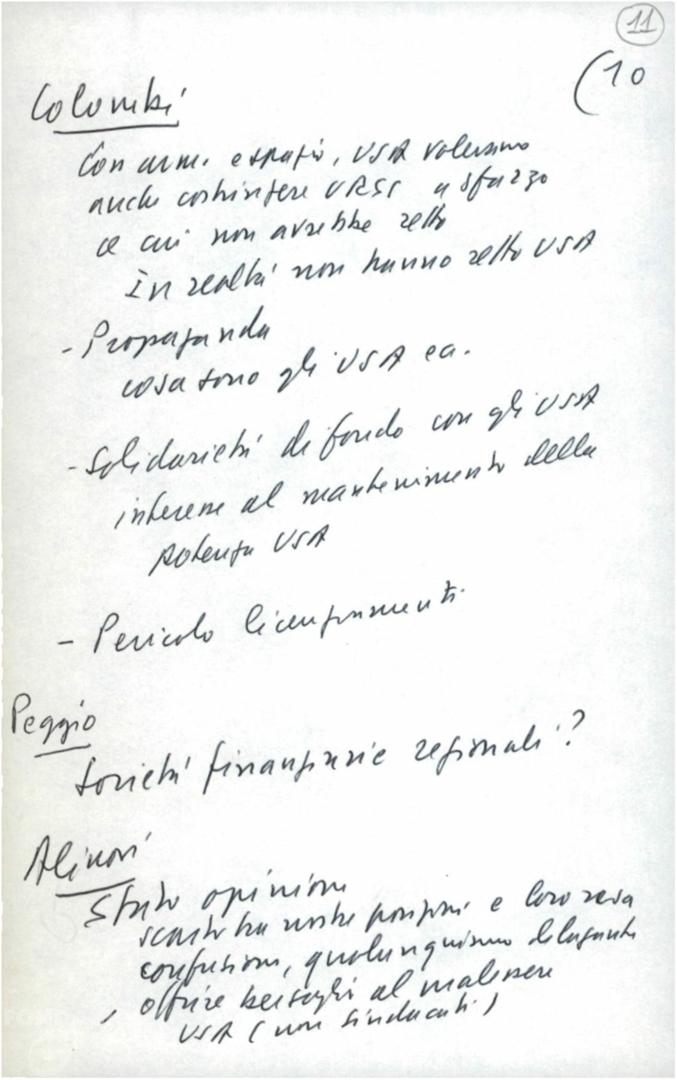 11
(10
Colombi
Con arm. e spazio, USA volevano
anche costringere URSS a sforzo
a cui non avrebbe retto
In realtà non hanno retto USA
- Propaganda
cosa sono gli USA ec.
- Solidarietà di fondo con gli USA
interesse al mantenimento della
potenza USA
- Pericolo licenziamenti
Peggio
Società finanziarie regionali?
Alinovi
Stato opinione
scarto tra nostre posizioni e loro resa
confusione, qualunquismo dilagante
, offrire bersagli al malessere
USA (non sindacati)